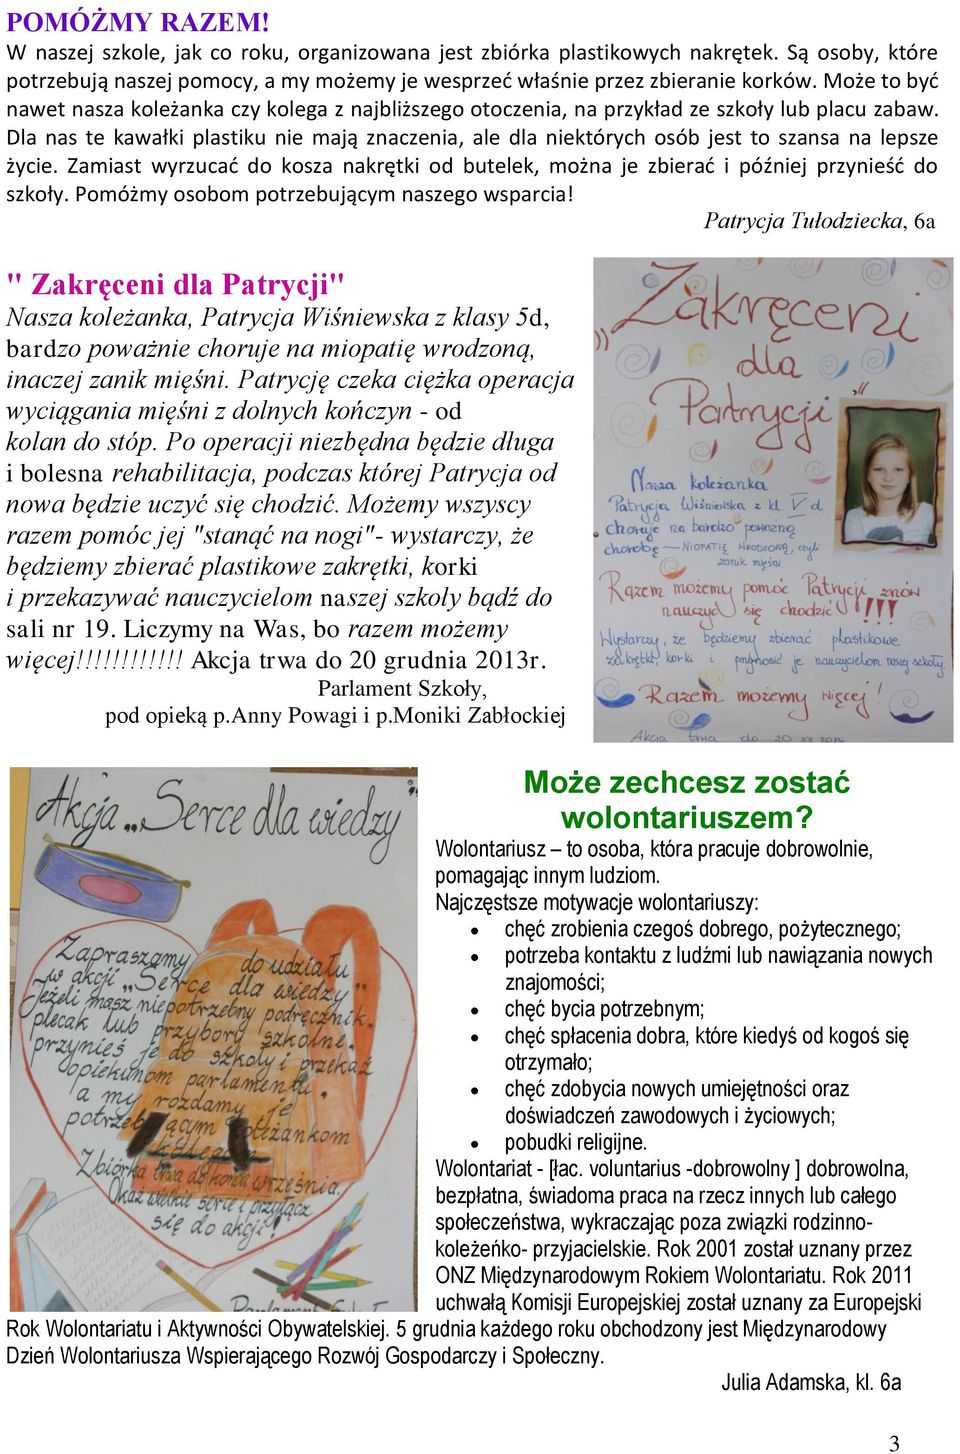 POMÓŻMY RAZEM!
W naszej szkole, jak co roku, organizowana jest zbiórka plastikowych nakrętek. Są osoby, które
potrzebują naszej pomocy, a my możemy je wesprzeć właśnie przez zbieranie korków. Może to być
nawet nasza koleżanka czy kolega z najbliższego otoczenia, na przykład ze szkoły lub placu zabaw.
Dla nas te kawałki plastiku nie mają znaczenia, ale dla niektórych osób jest to szansa na lepsze
życie. Zamiast wyrzucać do kosza nakrętki od butelek, można je zbierać i później przynieść do
szkoły. Pomóżmy osobom potrzebującym naszego wsparcia!
Patrycja Tułodziecka, 6a
" Zakręceni dla Patrycji"
Nasza koleżanka, Patrycja Wiśniewska z klasy 5d,
bardzo poważnie choruje na miopatię wrodzoną,
inaczej zanik mięśni. Patrycję czeka ciężka operacja
wyciągania mięśni z dolnych kończyn - od
kolan do stóp. Po operacji niezbędna będzie długa
i bolesna rehabilitacja, podczas której Patrycja od
nowa będzie uczyć się chodzić. Możemy wszyscy
razem pomóc jej "stanąć na nogi"- wystarczy, że
będziemy zbierać plastikowe zakrętki, korki
i przekazywać nauczycielom naszej szkoły bądź do
sali nr 19. Liczymy na Was, bo razem możemy
więcej!!!!!!!!!!!! Akcja trwa do 20 grudnia 2013r.
Parlament Szkoły,
pod opieką p.Anny Powagi i p.Moniki Zabłockiej
Zakręceni
dla
Patrycji
Nasza koleżanka
Patrycja Wiśniewska z kl. V d
choruje na bardzo poważną
chorobę – MIOPATIĘ WRODZONĄ, czyli
zanik mięśni
Razem możemy pomóc Patrycji znów
nauczyć się chodzić!!!
Wystarczy, że będziemy zbierać plastikowe
zakrętki, korki i przynosić je nauczycielom naszej szkoły.
Razem możemy więcej!
Akcja trwa do 20 XII
Akcja „Serce dla wiedzy”
Zapraszamy do udziału
w akcji „Serce dla wiedzy”
Jeżeli masz niepotrzebny podręcznik,
plecak lub przybory szkolne,
przynieś je do szkoły i przekaż
opiekunom parlamentu,
a my rozdamy je
potrzebującym koleżankom
kolegom
Zbiórka trwa do końca września.
Okaż wielkie serce i przyłącz
się do akcji!
Parlament
Może zechcesz zostać
wolontariuszem?
Wolontariusz – to osoba, która pracuje dobrowolnie,
pomagając innym ludziom.
Najczęstsze motywacje wolontariuszy:
• chęć zrobienia czegoś dobrego, pożytecznego;
• potrzeba kontaktu z ludźmi lub nawiązania nowych
znajomości;
• chęć bycia potrzebnym;
• chęć spłacenia dobra, które kiedyś od kogoś się
otrzymało;
• chęć zdobycia nowych umiejętności oraz
doświadczeń zawodowych i życiowych;
• pobudki religijne.
Wolontariat - [łac. voluntarius -dobrowolny ] dobrowolna,
bezpłatna, świadoma praca na rzecz innych lub całego
społeczeństwa, wykraczając poza związki rodzinno-
koleżeńko- przyjacielskie. Rok 2001 został uznany przez
ONZ Międzynarodowym Rokiem Wolontariatu. Rok 2011
uchwałą Komisji Europejskiej został uznany za Europejski
Rok Wolontariatu i Aktywności Obywatelskiej. 5 grudnia każdego roku obchodzony jest Międzynarodowy
Dzień Wolontariusza Wspierającego Rozwój Gospodarczy i Społeczny.
Julia Adamska, kl. 6a
3